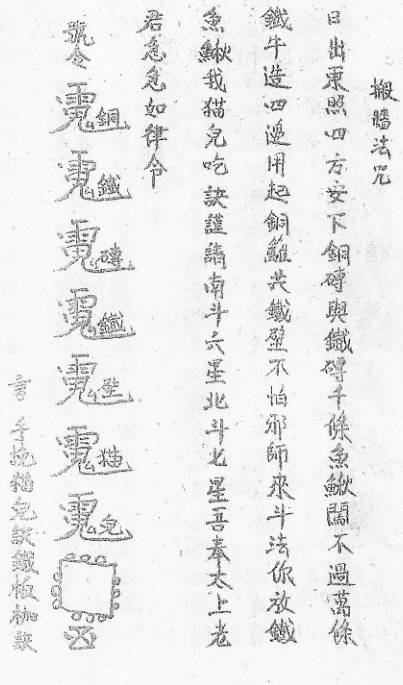 搬牆法咒
日出東照四方安下銅磚與鐵磚千條魚鰍闖不過萬條
鐵牛造四邊用起銅雞共鐵壁不怕邪師來斗法你放鐵
魚鰍我猫兒吃訣謹請南斗六星北斗七星吾奉太上老
君急急如律令
號令 銅鐵磚鐵壁猫兒
手挽猫兒訣鐵板訣